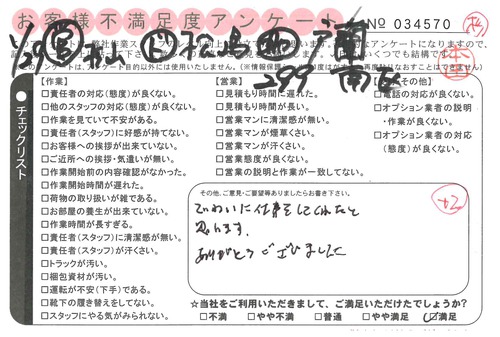 お客様不満足度アンケート
NO 034570
チェックリスト
【作業】
□責任者の対応(態度)が良くない。
□他のスタッフの対応(態度)が良くない。
□作業を見ていて不安がある。
□責任者(スタッフ)に好感が持てない。
□お客様への挨拶が出来ていない。
□ご近所への挨拶・気遣いが無い。
□作業開始前の内容確認がなかった。
□作業開始時間が遅れた。
□荷物の取り扱いが雑である。
□お部屋の養生が出来ていない。
□作業時間が長すぎる。
□責任者(スタッフ)に清潔感が無い。
□責任者(スタッフ)が汗くさい。
□トラックが汚い。
□梱包資材が汚い。
□運転が不安(下手)である。
□靴下の履き替えをしてない。
□スタッフにやる気がみられない。
【営業】
□見積もり時間に遅れた。
□見積もり時間が長い。
□営業マンに清潔感が無い。
□営業マンが煙草くさい。
□営業マンが汗くさい。
□営業態度が良くない。
□営業の説明と作業が一致してない。
その他】
□電話の対応が良くない。
□オプション業者の説明
・作業が良くない。
□オプション業者の対応
(態度)が良くない。
その他、ご意見・ご要望等ありましたらお書き下さい。
ていねいに仕事をしてくれたと
思います。
ありがとうございました
☆当社をご利用いただきまして、ご満足いただけたでしょうか?
□不満 □やや不満 □普通 □やや満足 □満足